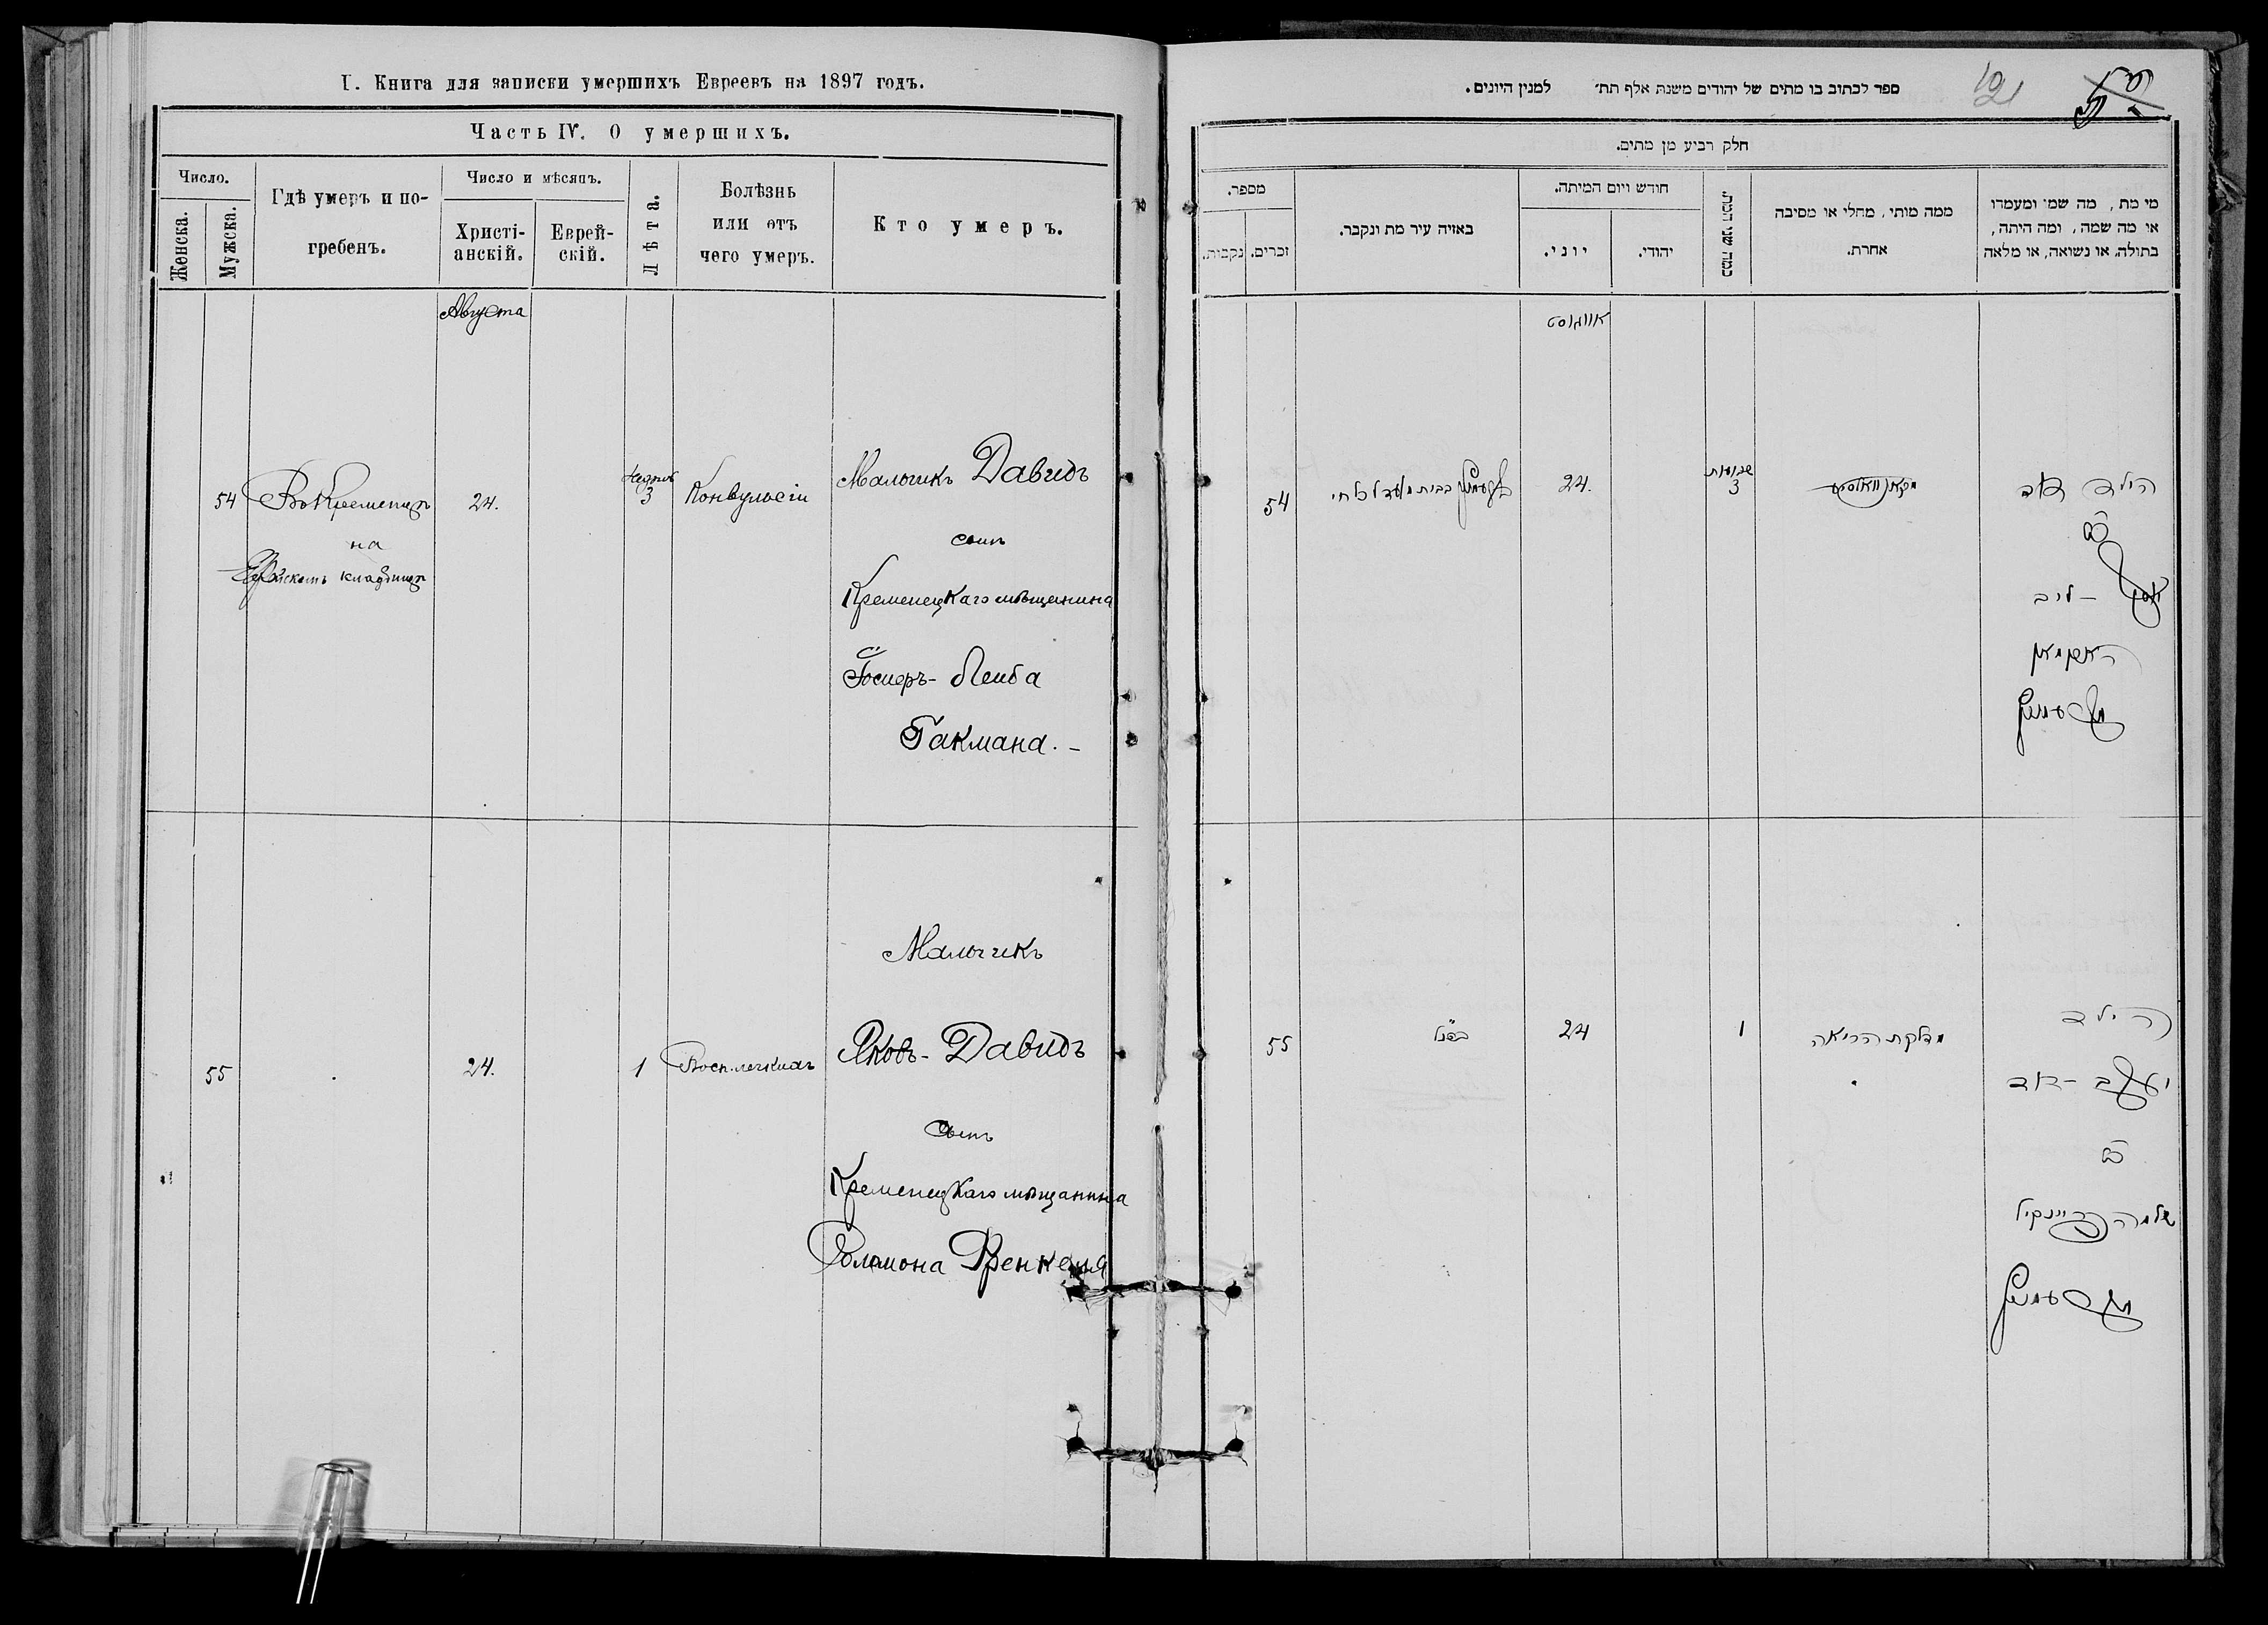 I. Книга для записки умершихъ Евреевъ на 1897 годъ.
Часть IV. О умершихъ.
Число.
Женска.
Мужска.
Гдѣ умеръ и по-
гребенъ.
Число и мѣсяцъ.
Христі-
анскій.
Еврей-
скій.
Лѣта.
Болѣзнь
или отъ
чего умеръ.
Кто умеръ.
Августа
54
Въ Кременцѣ
на
Еврейскомъ кладбищѣ
24.
3
Конвульсіи
Мальчикъ Давидъ
сынъ
Кременецкаго мѣщанина
Лейба
Гакмана. -
55
24.
1
Восп. легкихъ
Мальчикъ
Яковъ-Давидъ
сынъ
Кременецкаго мѣщанина
Соломона Френкеля
ספר לכתוב בו מתים של יהודים משנת אלף תת׳ למנין היונים.
121
חלק רביעי מן מתים.
מספר.
נקבות.
זכרים.
באיזה עיר מת ונקבר.
חודש ויום המיתה.
יוני.
יהודי.
כמה שני המת.
ממה מותי, מחלי או מסיבה
אחרת.
מי מת, מה שמו ומעמדו
או מה שמה, ומה היתה,
בתולה, או נשואה, או מלאה
אווגוסט
54
בבית מועד לכל חי
24.
שבועות
3
הילד דוד
בן
ליב
האקמאן
55
כנ"ל
24
1
מדלקת הריאה
הילד
יעקב - דוד
בן
שלמה פריינקיל